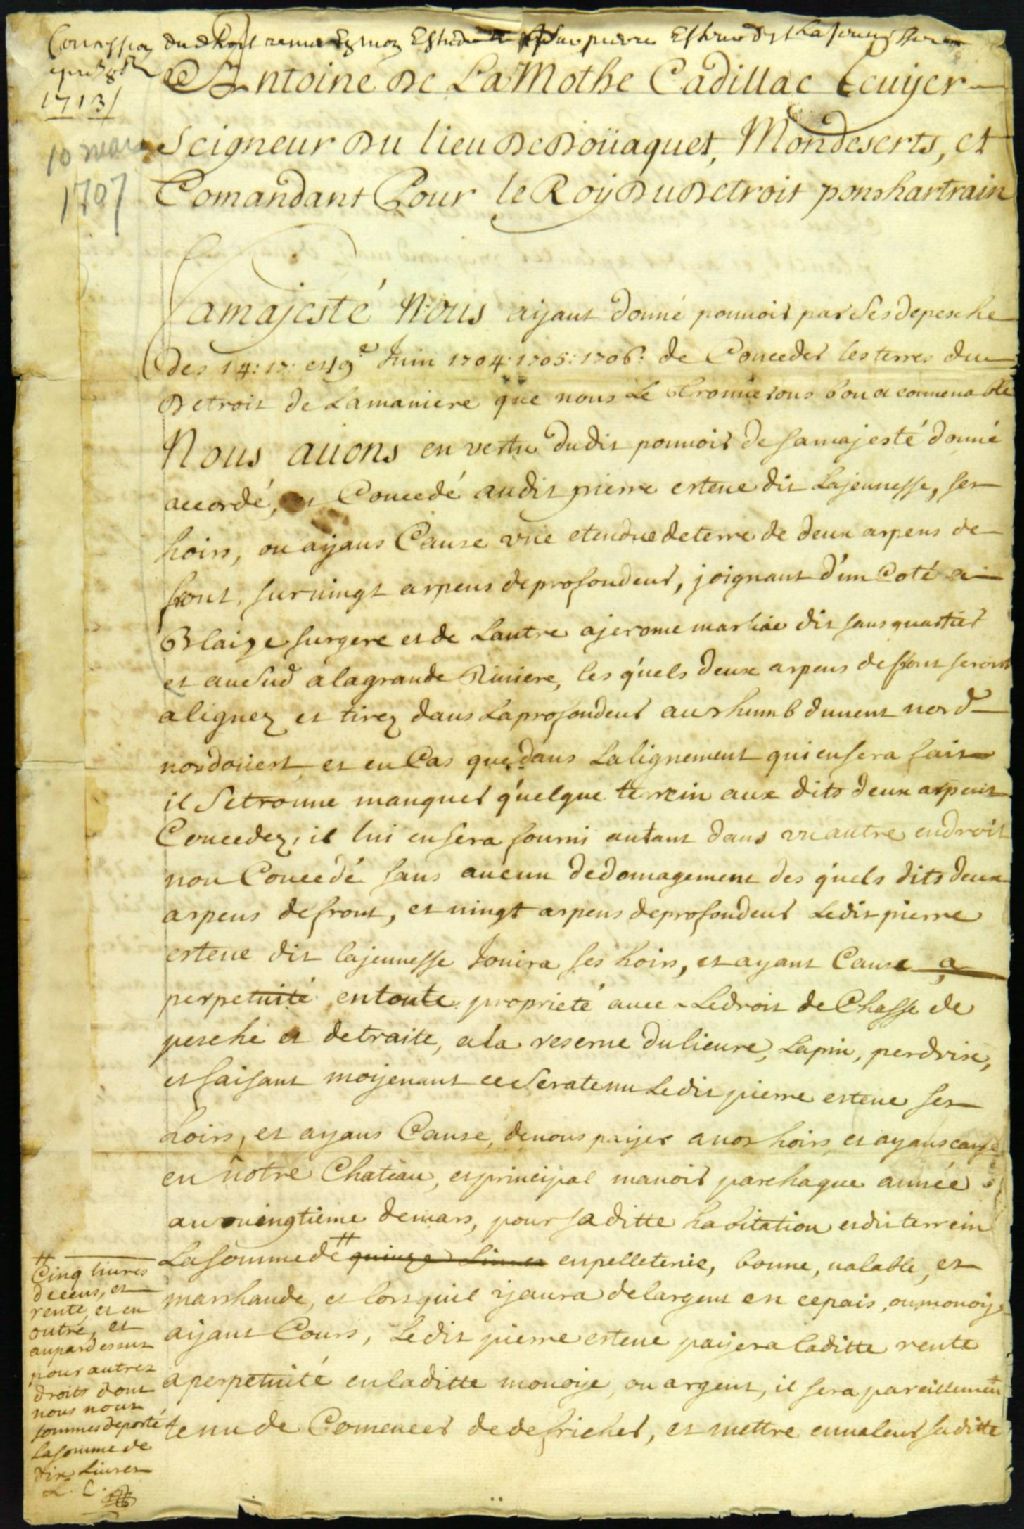 Concession du
1713
10 mars
1707
Antoine De LaMothe Cadillac Ecuÿer
Seigneur Du lieu De Doüaquet, Mondeserts, et
Comandant Pour le Roÿ Du Detroit pontchartrain
Samajesté Nous aÿant donné pouuoir par Ses depesche
des 14: 17: et 19e Juin 1704: 1705: 1706: de Conceder les terres du
Detroit de Lamaniere que nous Le trouuerons bon et conuenable
Nous auons en vertu dudit pouuoir de Samajesté donné
accordé, et Concedé audit pierre esteue dit Lajeunesse, ses
hoirs, ou aÿans Cause vne etendue de terre de deux arpens de
front, sur uingt arpens de profondeur, joignant d'un Coté a
Blaize surgere et de Lautre a jerome marliac dit sansquartier
et au Sud a la grande Riuiere, les quels deux arpens de front seront
alignez et tirez dans La profondeur au rhumb du uent nord
nordoüest et en Cas que dans Lalignement qui en sera fait
il Se trouue manquer quelque terrein aux dits deux arpens
Concedez, il lui en sera fourni autant dans vn autre endroit
non Concedé sans aucun dedomagement des quels dits deux
arpens de front, et uingt arpens de profondeur Ledit pierre
esteue dit lajeunesse Jouira ses hoirs, et ayant Cause a
perpetuité en toute proprieté auec Ledroit de Chasse de
pesche et de traite, a la reserue du lieure, Lapin, perdrix,
et faisant moÿenant ce Sera tenu Ledit pierre esteue ses
hoirs, et ayans Cause, de nous paÿer a nos hoirs et ayans cause
en nôtre Chateau, et principal manoir par chaque année
au uingtieme de mars, pour sa ditte habitation et dit terrein
La somme de # quinze Liures en pelleterie, bonne, ualable, et
marchande, et lors qu'il ÿ aura de largent en ce païs, ou monoÿe
aÿant Cours, Ledit pierre esteue paÿera laditte rente
a perpetuité en laditte monoÿe, ou argent, il sera pareillement
tenu de Comencer de defricher, et mettre en ualeur sa ditte
# Cinq liures
de cens, et
rente, et en
outre, et
au par dessus
pour autres
droits dont
nous nous
sommes deporté
La somme de
dix Liures
L. C.